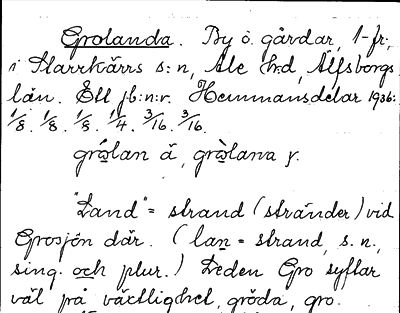 Grolanda. By ö. gårdar, 1-fr:,
i Starrkärrs s:n, Ale h:d, Älfsborgs
län. Ett jb:n:r. Hemmansdelar 1936:
1/8. 1/8. 1/8. 1/4. 3/16. 3/16.
grò̱lan ä, grò̱lana y.
"Land" = strand (stränder) vid
Grosjön där. (lan = strand, s.n.,
sing. och plur.) Leden Gro syftar
väl på växtlighet, gröda, gro.